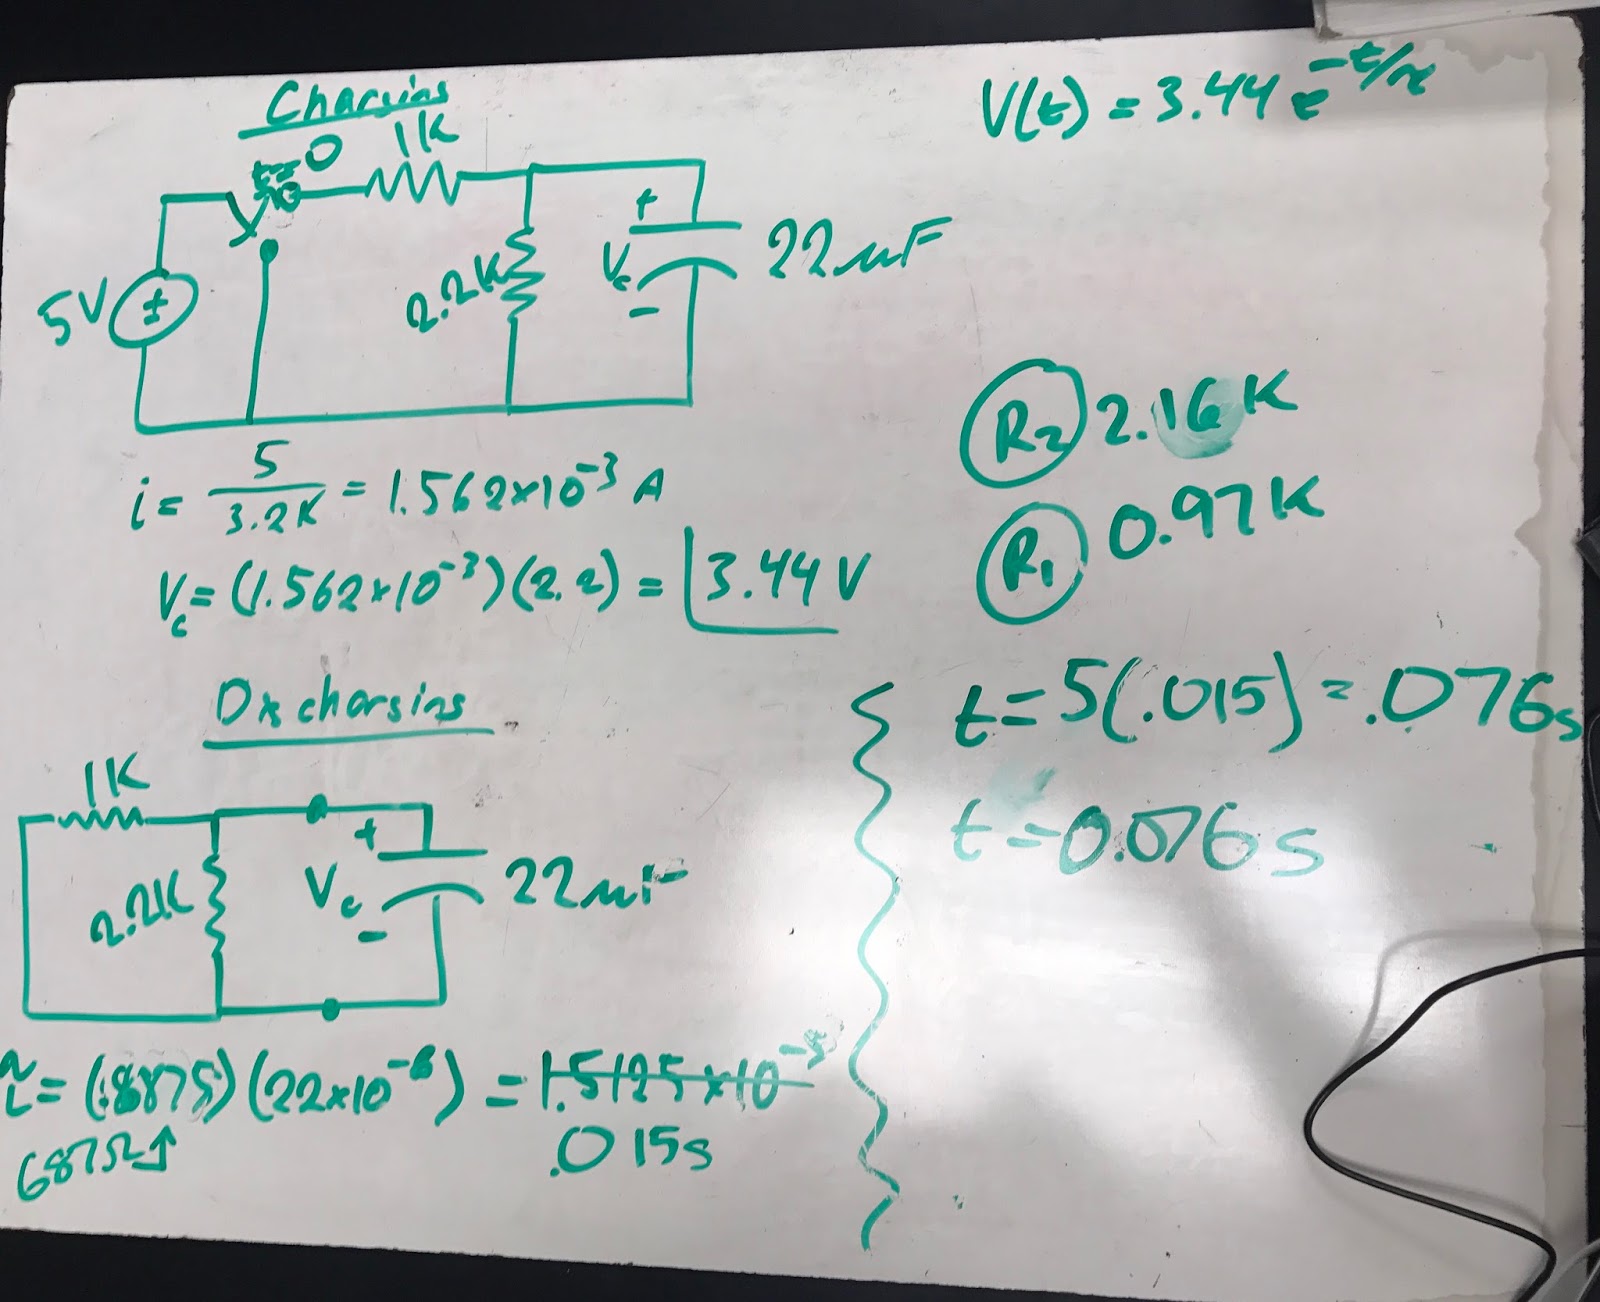 Charging
t=0
1K
5V
±
2.2K
+
Vc
-
22uF
i = 5/3.2K = 1.562×10^-3 A
Vc = (1.562×10^-3)(2.2) = 3.44 V
Discharging
1K
2.2K
+
Vc
-
22uF
τ = (.6875)(22×10^-6) = 1.5125×10^-5
687Ω↑
.015s
V(t) = 3.44 e^-t/τ
R2 2.16K
R1 0.97K
t = 5(.015) = .076s
t = 0.076s